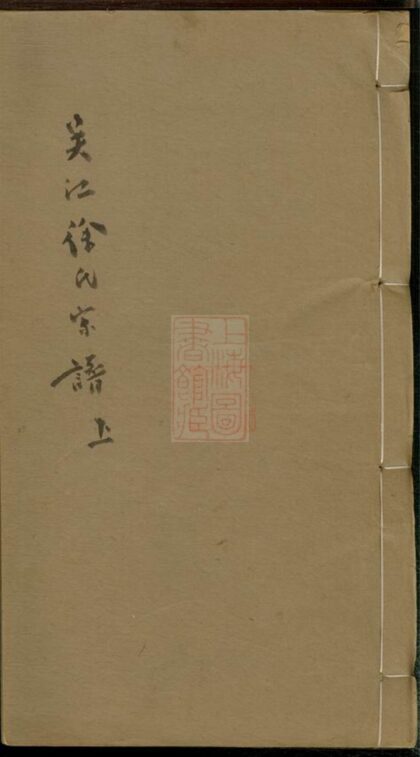 吴江徐氏宗譜 上
上海圖
書館藏